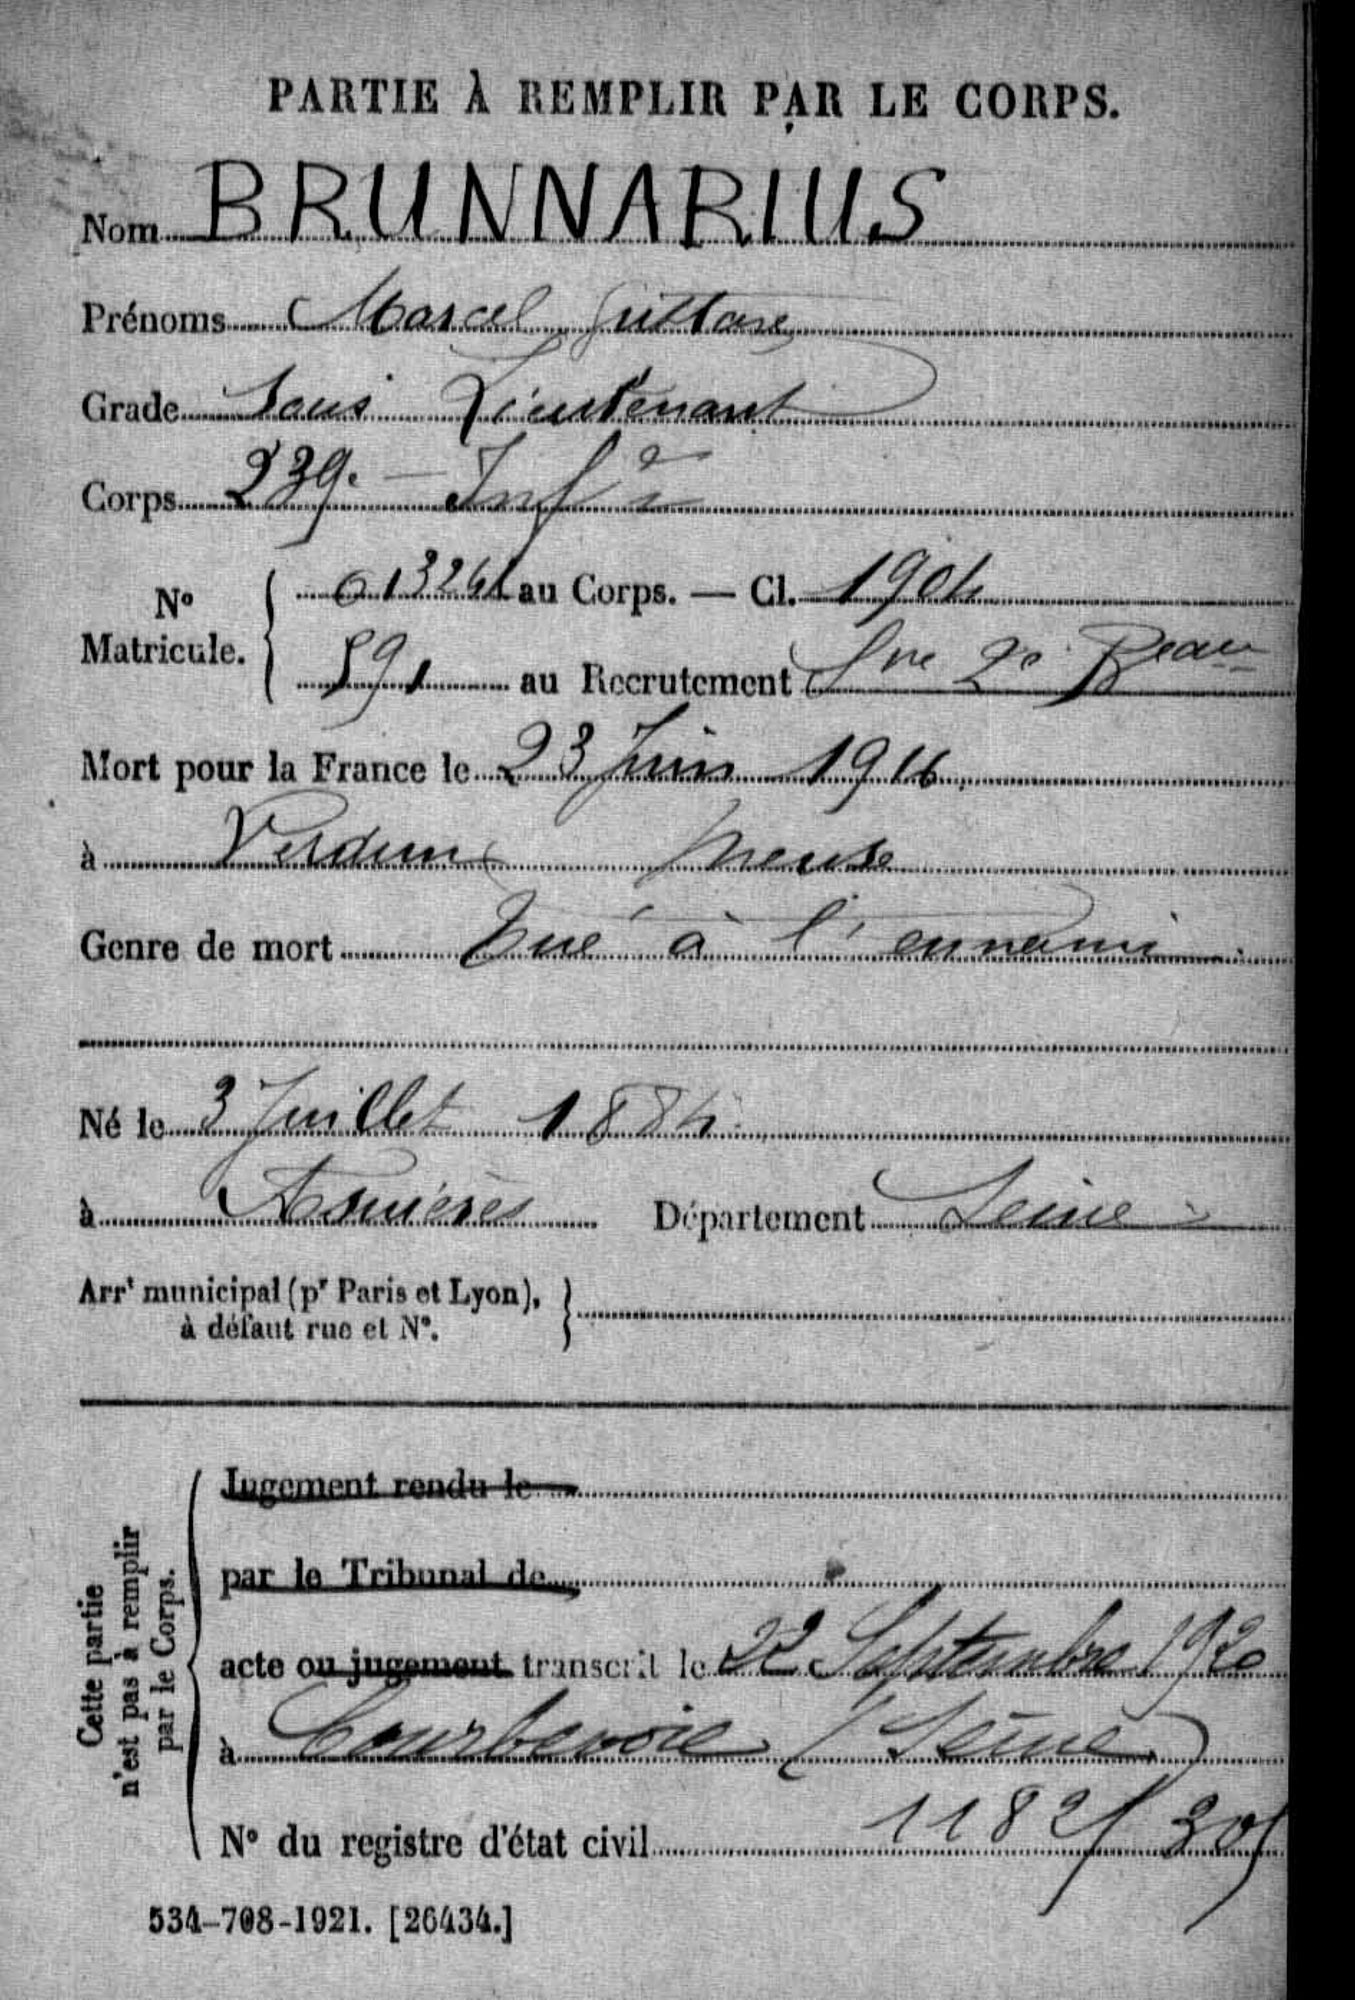 PARTIE À REMPLIR PAR LE CORPS.
Nom BRUNNARIUS
Prénoms Marcel Gustave
Grade Sous Lieutenant
Corps 239e Infie
N° Matricule. 013241 au Corps. — Cl. 1904
591 au Recrutement Sne 2e Beau
Mort pour la France le 23 Juin 1916
à Verdun Meuse
Genre de mort Tué à l'ennemi
Né le 3 Juillet 1884
à Asnières Département Seine
Arrt municipal (pr Paris et Lyon),
à défaut rue et N°.
Cette partie
n'est pas à remplir
par le Corps.
Jugement rendu le
par le Tribunal de
acte ou jugement transcrit le 22 Septembre 1920
à Courbevoie (Seine)
N° du registre d'état civil 1182/305
534-708-1921. [26434.]